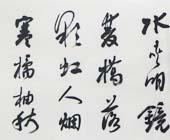 水夾明鏡
雙橋落
彩虹人烟
寒橘柚秋